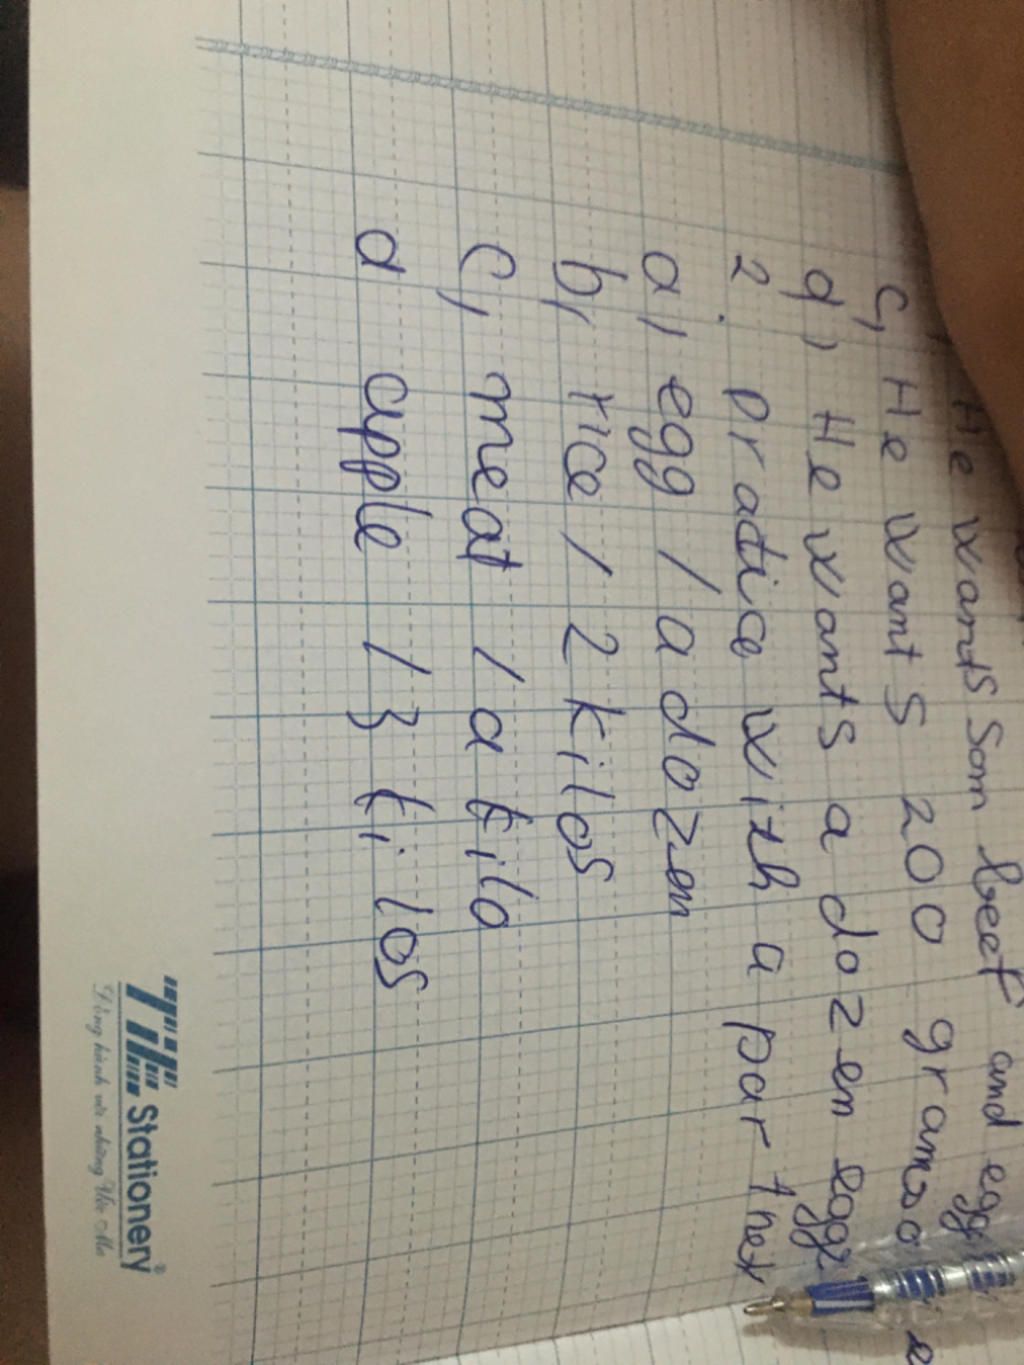 He wants som beef and egg
c, He want s 200 grams o
d, He wants a dozen eggs
2. practice with a partner
a, egg / a dozen
b, rice / 2 kilos
c, meat / a kilo
d apple / 3 kilos
TiTi Stationery®